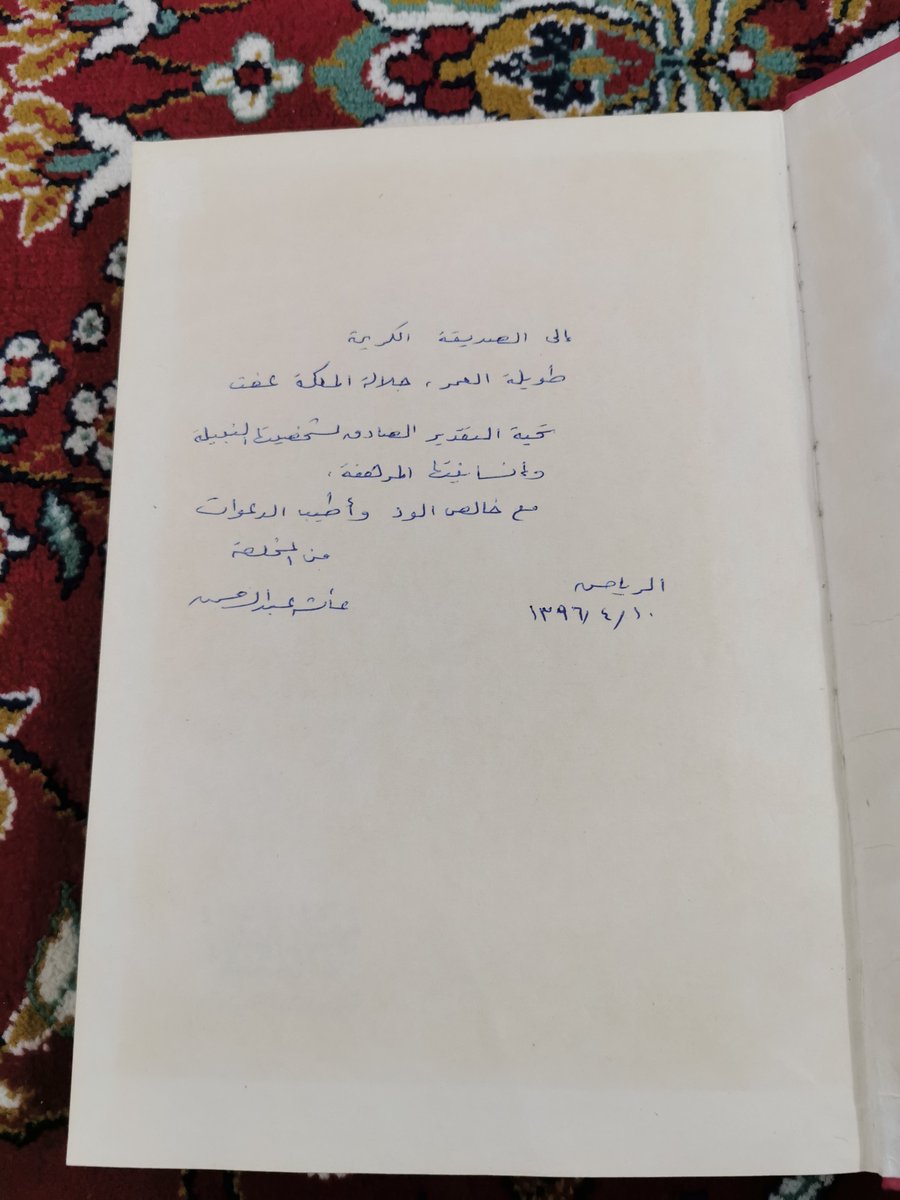 إلى الصديقة الكريمة
طويلة العمر، جلالة الملكة عفت
تحية التقدير الصادق لشخصيتها النبيلة
وإنسانيتها المرهفة،
مع خالص الود وأطيب الدعوات
من المخلصة
عائشة عبد الرحمن
الرياض
١٣٩٦/٤/١٠